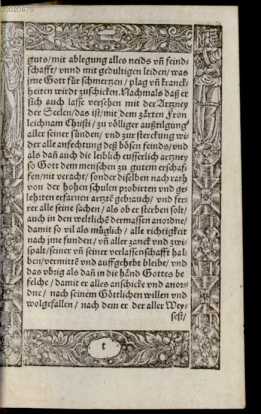 guts/mit ablegung alles neids vñ feind-
schafft/vnnd mit gedultigen leiden/was
jme Gott für schmertzen/plag vñ kranck
heiten würdt zuschicken. Nachmals daß er
sich auch lasse versehen mit der Artzney
der Seelen/das ist/mit dem zarten Fron
leichnam Christi/zu völliger außtilgung
aller seiner sünden/vnd zur sterckung wi-
der alle anfechtung deß bösen feinds/vnd
als dañ auch die leiblich eusserlich artzney
so Gott dem menschen zu gutem erschaf-
fen/nit veracht/sonder diselben nach rath
von der hohen schulen probirten vnd ge-
lehrten erfarnen artzet gebrauch/vnd fer-
rer alle seine sachen/als ob er sterben solt/
auch in den weltlichē dermassen anordne/
damit so vil als müglich/alle richtigkeit
nach jme funden/vñ aller zanck vnd zwi-
spalt/seiner vñ seiner verlassenschafft hal-
ben/vermittē vnd auffgehebt bleibe/vnd
das vbrig als dañ in die händ Gottes be
felche/damit er alles anschicke vnd anor-
dne/nach seinem Göttlichen willen vnd
wolgefallen/nach dem er der aller Wey-
sest/
t